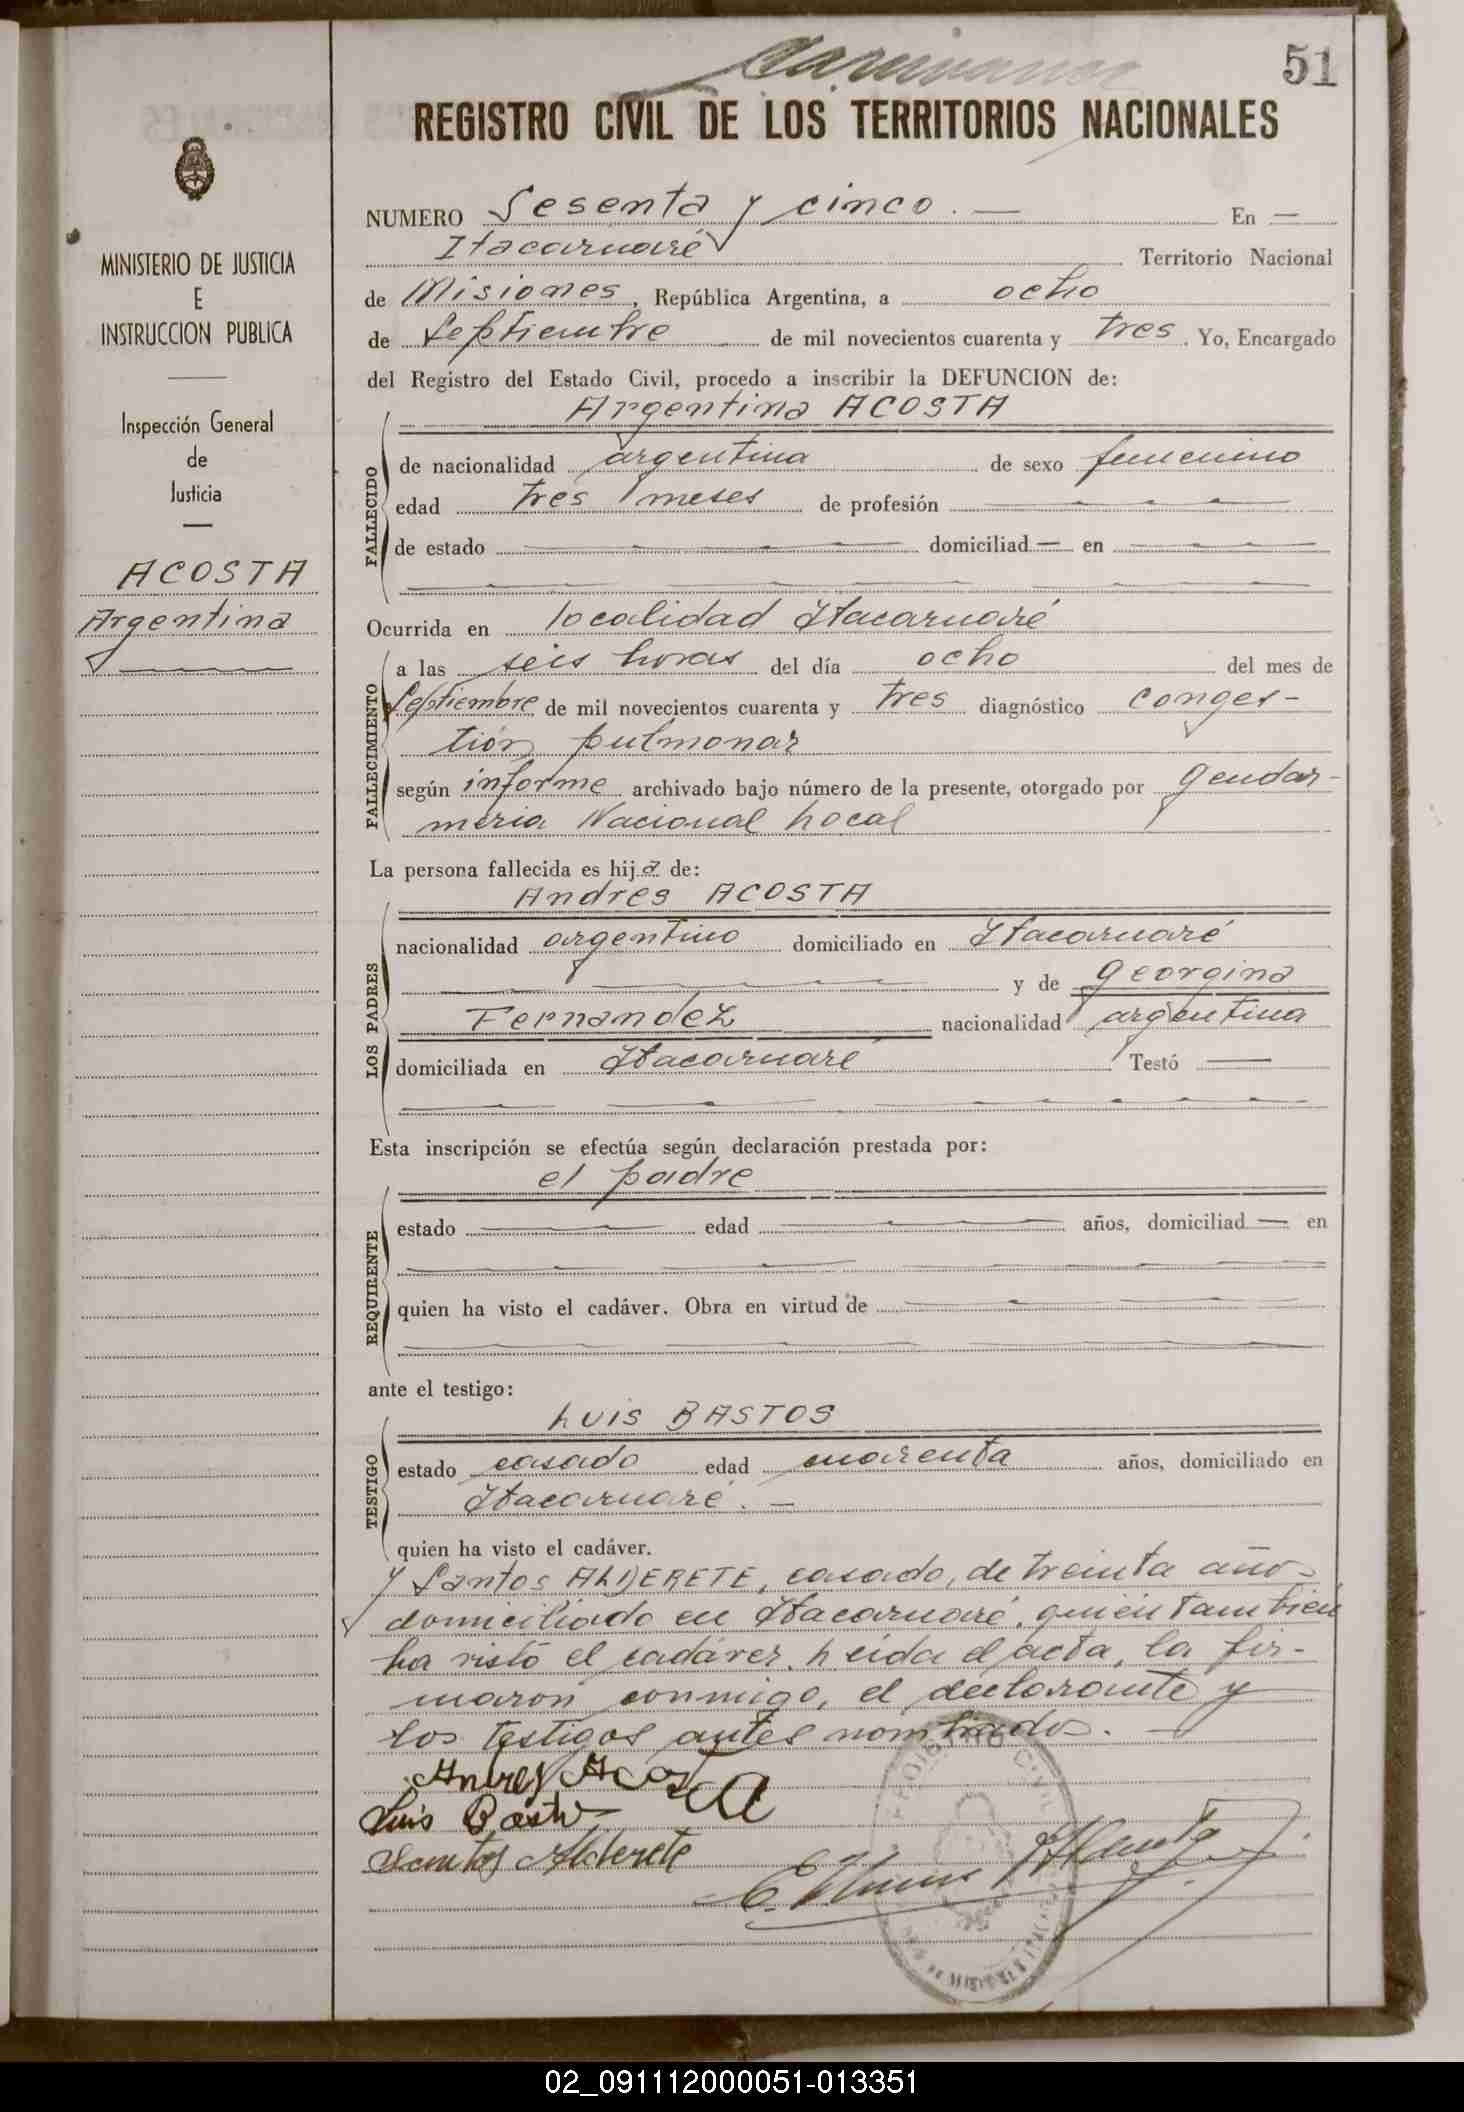 51
REGISTRO CIVIL DE LOS TERRITORIOS NACIONALES
MINISTERIO DE JUSTICIA
E
INSTRUCCION PUBLICA
Inspección General
de
Justicia
ACOSTA
Argentina
NUMERO Sesenta y cinco. — En —
Itacaruaré Territorio Nacional
de Misiones, República Argentina, a ocho
de Septiembre de mil novecientos cuarenta y tres. Yo, Encargado
del Registro del Estado Civil, procedo a inscribir la DEFUNCION de:
Argentina ACOSTA
FALLECIDO
de nacionalidad argentina de sexo femenino
edad tres meses de profesión
de estado domiciliad — en
Ocurrida en localidad Itacaruaré
FALLECIMIENTO
a las seis horas del día ocho del mes de
Septiembre de mil novecientos cuarenta y tres diagnóstico conges-
tión pulmonar
según informe archivado bajo número de la presente, otorgado por Gendar-
meria Nacional Local
La persona fallecida es hija de:
Andres ACOSTA
LOS PADRES
nacionalidad argentino domiciliado en Itacaruaré
y de Georgina
Fernandez nacionalidad argentina
domiciliada en Itacaruaré Testó —
Esta inscripción se efectúa según declaración prestada por:
el padre
REQUIRENTE
estado edad años, domiciliad — en
quien ha visto el cadáver. Obra en virtud de
ante el testigo:
Luis BASTOS
TESTIGO
estado casado edad cuarenta años, domiciliado en
Itacaruaré. —
quien ha visto el cadáver.
y Santos ALDERETE, casado, de treinta años
domiciliado en Itacaruaré, quien también
ha visto el cadáver. Leida el acta, la fir-
maron conmigo, el declarante y
los testigos antes nombrados. —
Andres Acosta
Luis Bastos
Santos Alderete
REGISTRO CIVIL
02_091112000051-013351